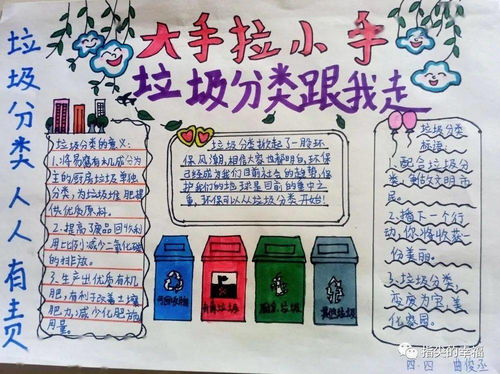 大手拉小手
垃圾分类跟我走
垃圾分类人人有责
垃圾分类的意义:
1.将易腐有机成分为
主的厨房垃圾单独
分类,为垃圾堆肥提
供优质原料。
2.提高废品回收利
用比例减少二氧化碳
的排放。
3.生产出优质有机
肥,有利于改善土壤
肥力,减少化肥施
用量。
垃圾分类掀起了一股环
保风潮,相信大家也都明白,环保
已经成为我们目前社会的趋势,保
护我们的地球是目前的重中之
重,环保可以从垃圾分类开始!
可回收物
有害垃圾
厨余垃圾
其他垃圾
垃圾分类
标语:
1.配合垃圾分
类,争做文明市
民。
2.播下一个行
动,你将收获一
份美丽。
3.垃圾分类,
变废为宝,美
化家园。
四.四 曲俊丞
指尖的幸福